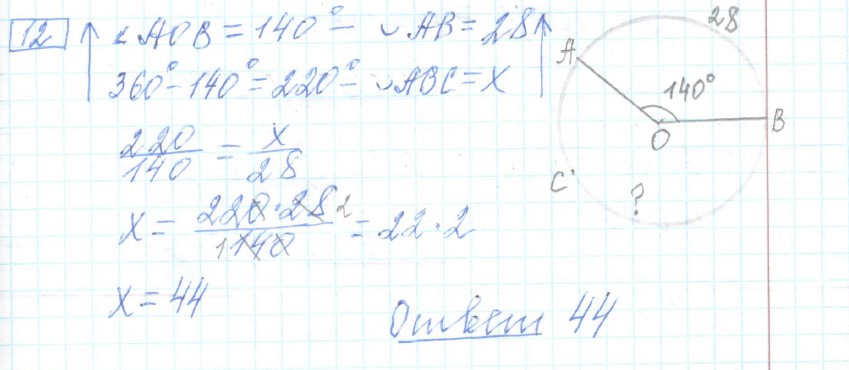 12 ∠AOB = 140° – ◡AB = 28
360° - 140° = 220° – ◡ABC = X
220/140 = X/28
X = 220·28 2 / 1 140 = 22·2
X = 44
Ответ 44
28
A
140°
B
O
C
?